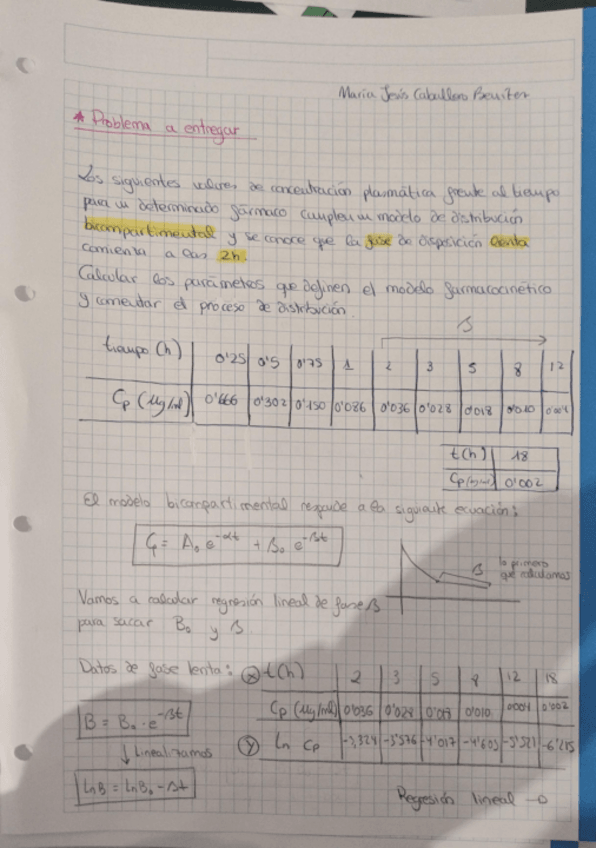 María Jesús Caballero Benítez
* Problema a entregar
Los siguientes valores de concentración plasmática frente al tiempo
para un determinado fármaco cumplen un modelo de distribución
bicompartimental y se conoce que la fase de disposición lenta
comienza a las 2h.
Calcular los parámetros que definen el modelo farmacocinético
y comentar el proceso de distribución.
β
tiempo (h) 0'25 0'5 0'75 1 2 3 5 8 12
Cp (µg/ml) 0'666 0'302 0'150 0'086 0'036 0'028 0'018 0'010 0'004
t(h) 18
Cp (µg/ml) 0'002
El modelo bicompartimental responde a la siguiente ecuación:
Cp = A₀ e^-αt + B₀ e^-βt
β lo primero
que calculamos
Vamos a calcular regresión lineal de fase β
para sacar B₀ y β
Datos de fase lenta: (x) t(h) 2 3 5 8 12 18
Cp (µg/ml) 0'036 0'028 0'018 0'010 0'004 0'002
B = B₀ · e^-βt
(y) ln Cp -3,324 -3'576 -4'017 -4'605 -5'521 -6'215
↓ Linealizamos
LnB = LnB₀ - βt
Regresión lineal →